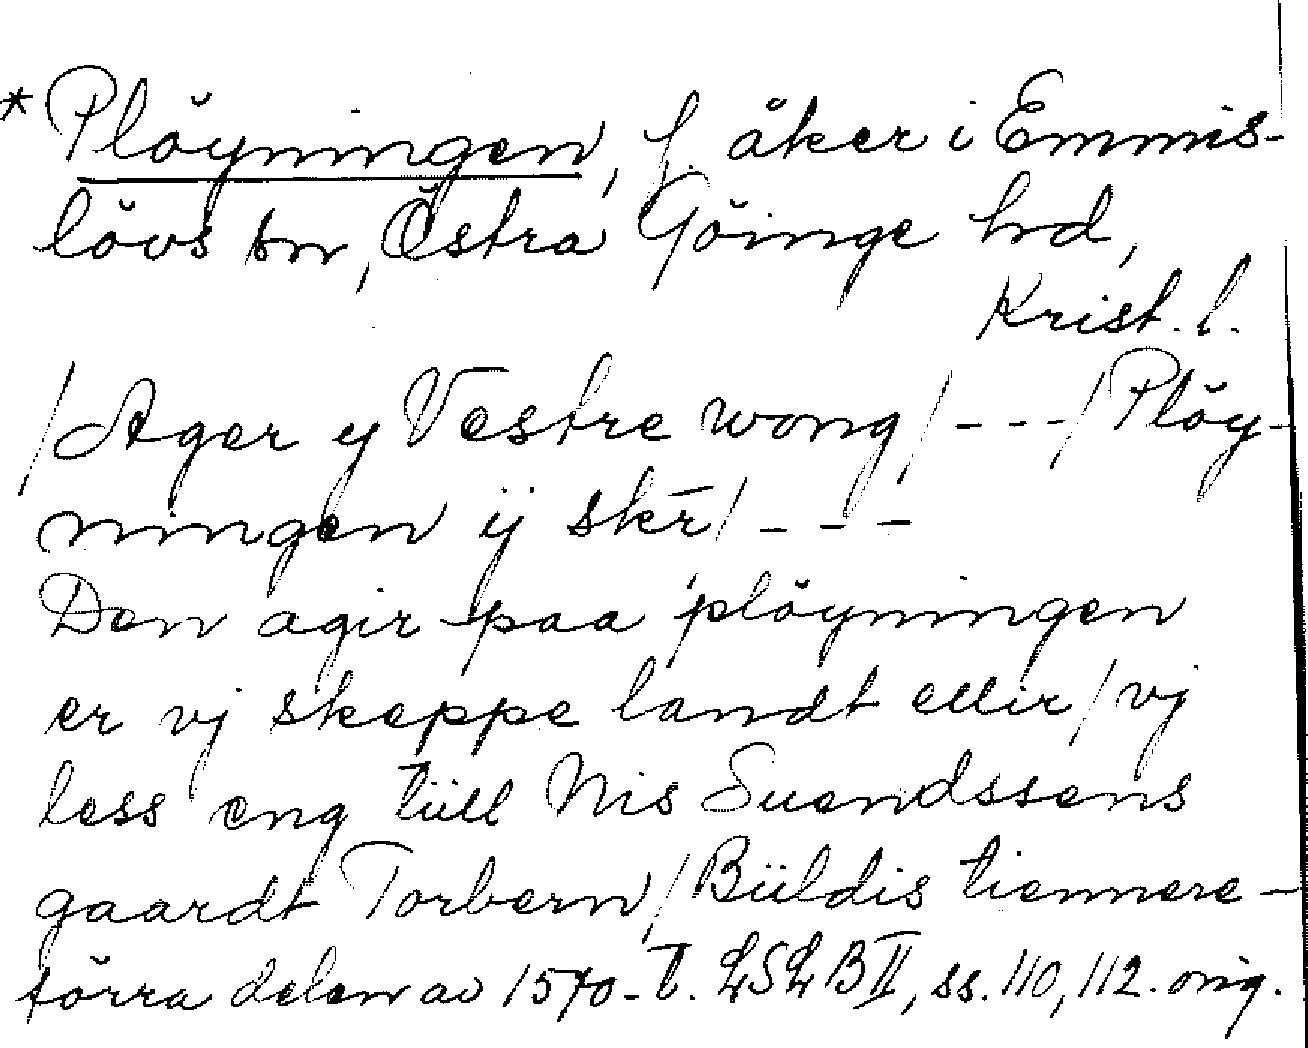 * Plöyningen, f. åker i Emmis-
lövs sn, Östra Göinge hd,
Krist. l.
/Ager y Vestre wong/---/Plöy-
ningen ij skr̄/---
Den agir paa plöyningen
er vj skeppe landt ellir/vj
less eng tüll Nis Suendssens
gaardt Torbern/Büldis tiennere-
förra delen av 1570-t. LSLB II, ss. 110, 112. orig.